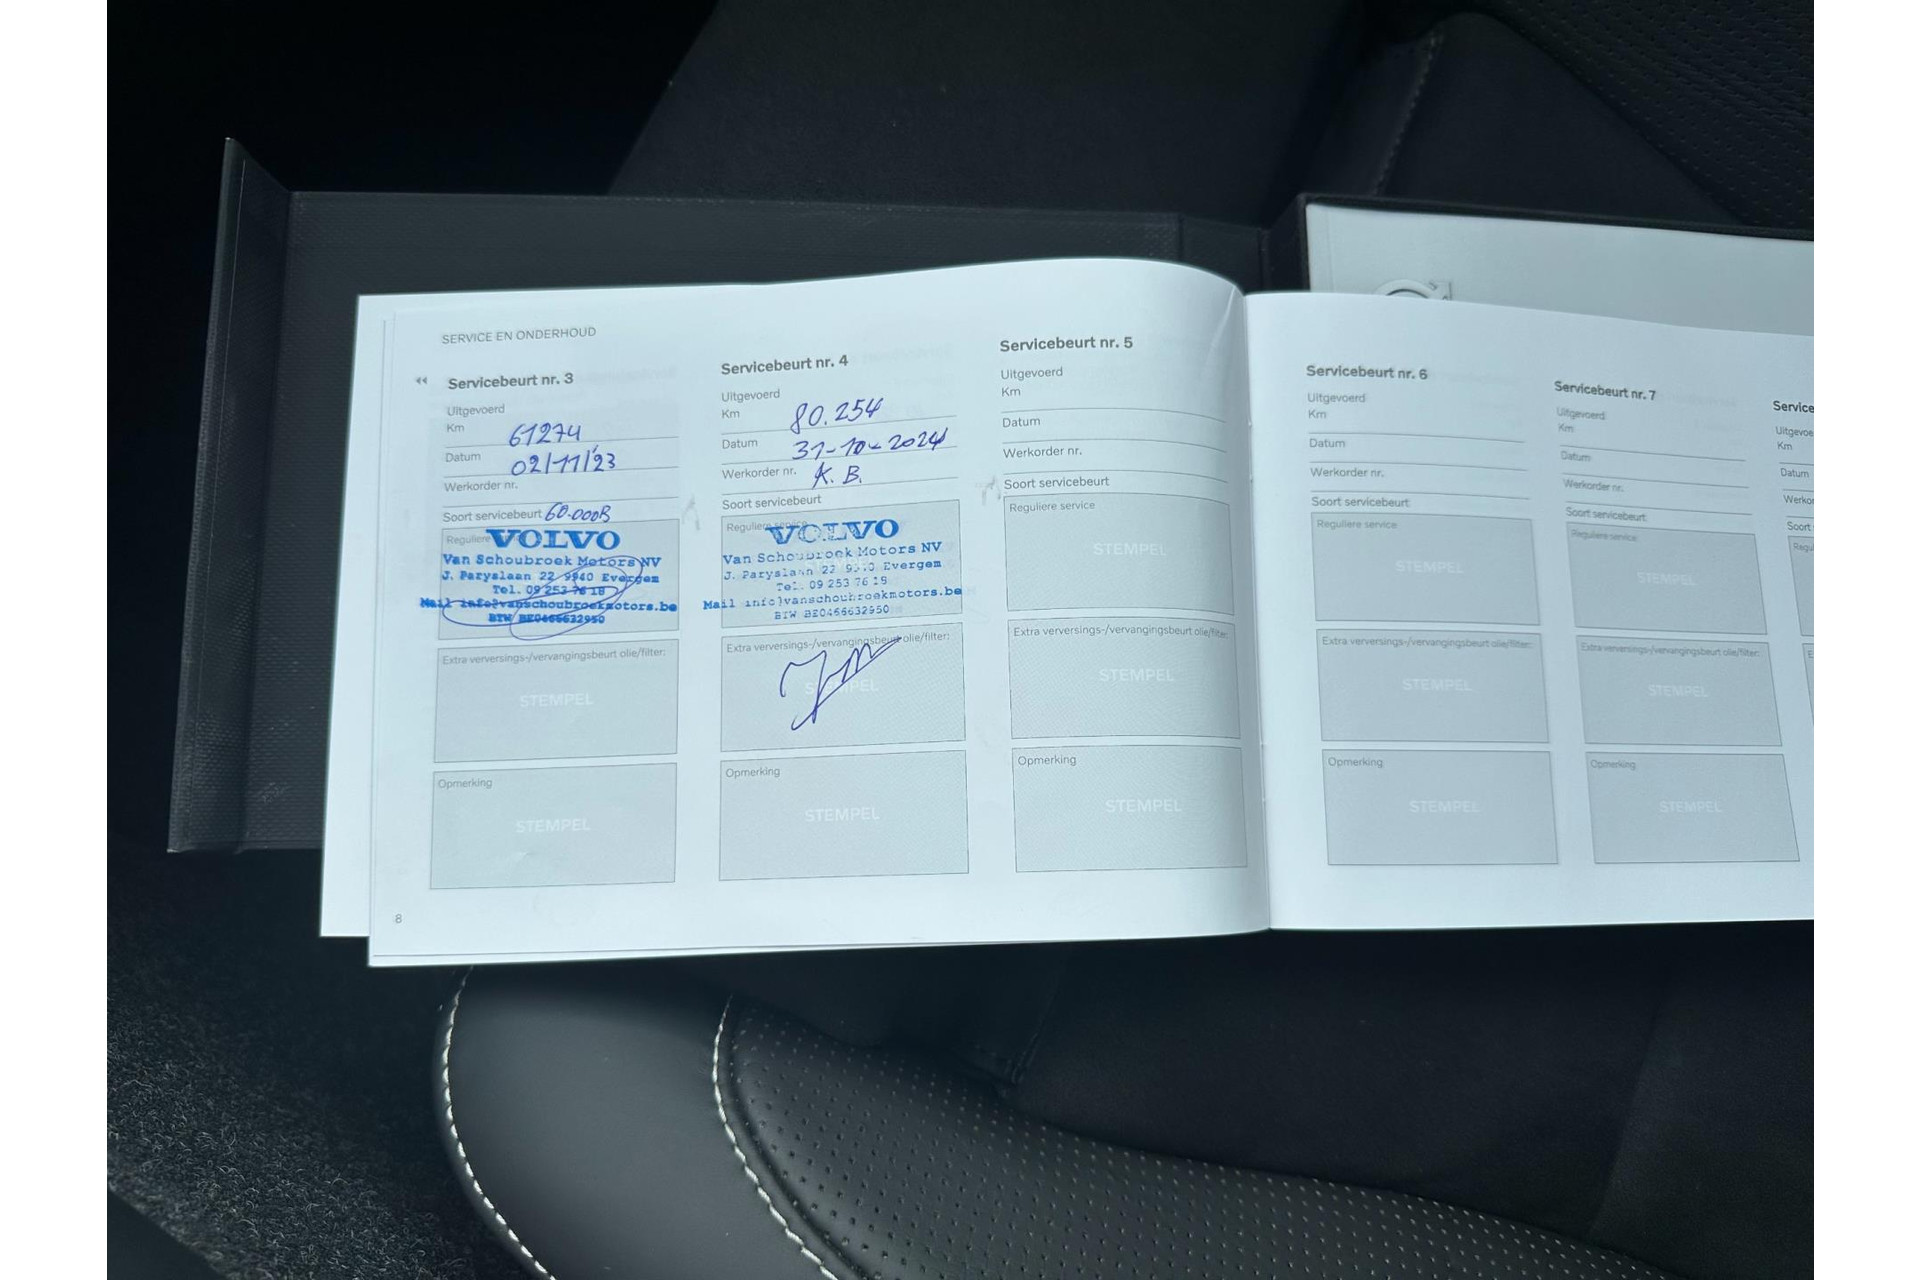 SERVICE EN ONDERHOUD
Servicebeurt nr. 3
Uitgevoerd
Km 61274
Datum 02/11/23
Werkorder nr.
Soort servicebeurt 60.000B
Reguliere
VOLVO
Van Schoubroek Motors NV
J. Paryslaan 22 9940 Evergem
Tel. 09 253 76 18
Mail info@vanschoubroekmotors.be
BTW BE0466632950
Extra verversings-/vervangingsbeurt olie/filter:
STEMPEL
Opmerking
STEMPEL
8
Servicebeurt nr. 4
Uitgevoerd
Km 80.254
Datum 31-10-2024
Werkorder nr. K.B.
Soort servicebeurt
Reguliere service
VOLVO
Van Schoubroek Motors NV
J. Paryslaan 22 9940 Evergem
Tel. 09 253 76 18
Mail info@vanschoubroekmotors.be
BTW BE0466632950
Extra verversings-/vervangingsbeurt olie/filter:
STEMPEL
Opmerking
STEMPEL
Servicebeurt nr. 5
Uitgevoerd
Km
Datum
Werkorder nr.
Soort servicebeurt
Reguliere service
STEMPEL
Extra verversings-/vervangingsbeurt olie/filter:
STEMPEL
Opmerking
STEMPEL
Servicebeurt nr. 6
Uitgevoerd
Km
Datum
Werkorder nr.
Soort servicebeurt
Reguliere service
STEMPEL
Extra verversings-/vervangingsbeurt olie/filter:
STEMPEL
Opmerking
STEMPEL
Servicebeurt nr. 7
Uitgevoerd
Km
Datum
Werkorder nr.
Soort servicebeurt
Reguliere service
STEMPEL
Extra verversings-/vervangingsbeurt olie/filter:
STEMPEL
Opmerking
STEMPEL
Service
Uitgevoe
Km
Datum
Werkor
Soort
Regu
E